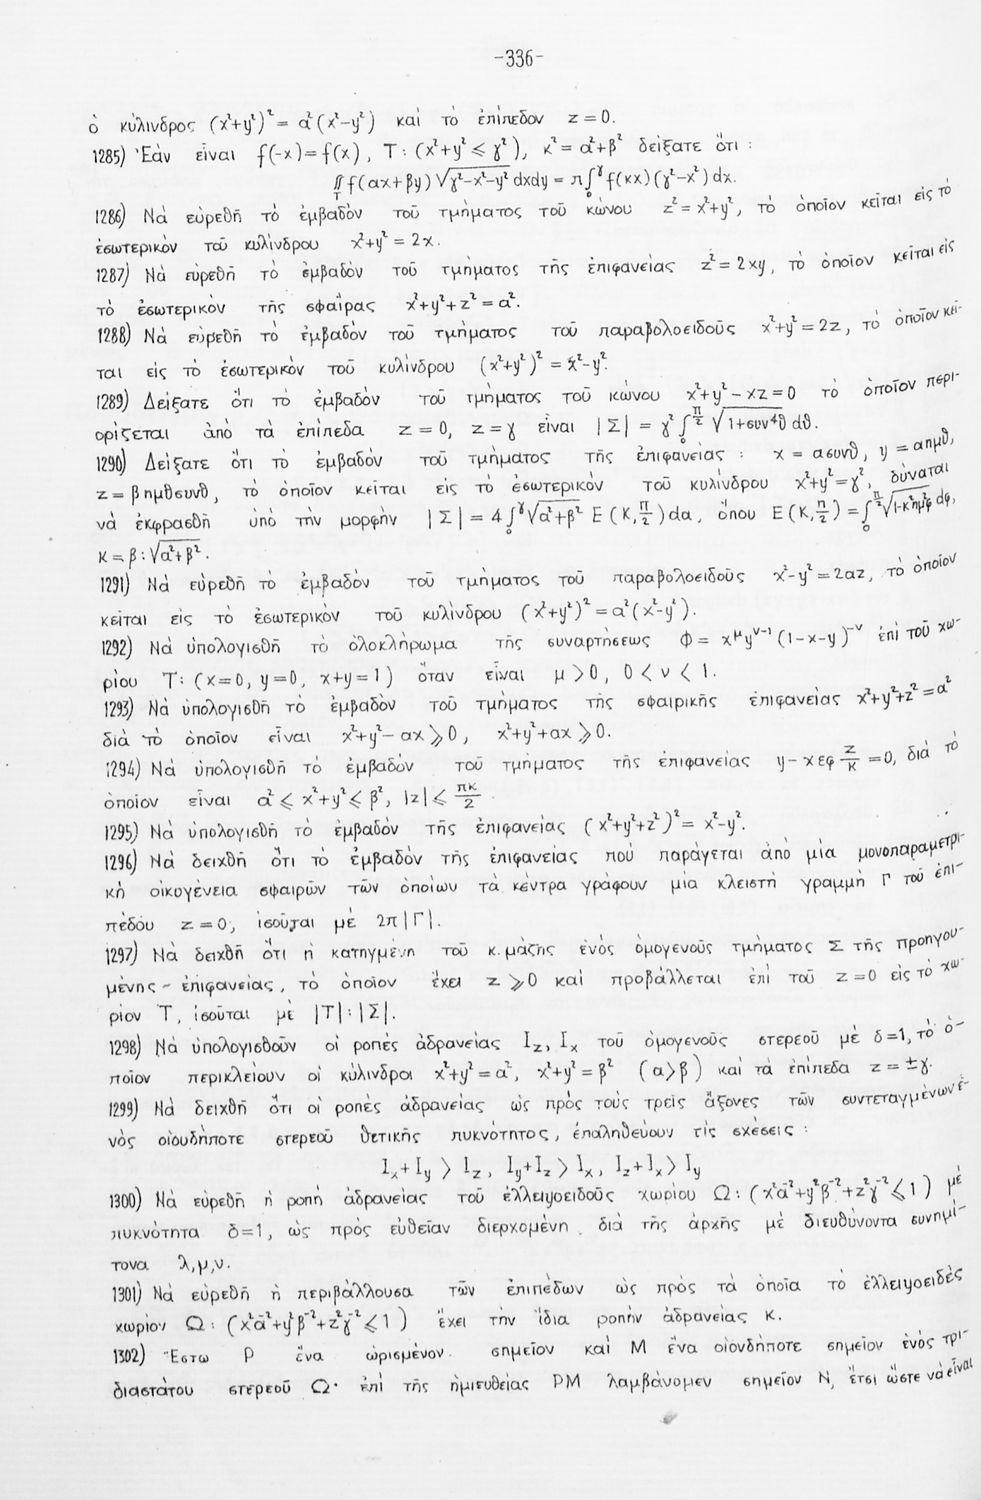 -336-
ὁ κύλινδρος (x²+y²)² = a²(x²-y²) καὶ τὸ ἐπίπεδον z=0.
1285) Ἐὰν εἶναι f(-x)=f(x), T: (x²+y² ≤ γ²), κ²=α²+β² δείξατε ὅτι :
∬_T f(αx+βy)√(γ²-x²-y²) dxdy = π∫₀^γ f(κx)(γ²-x²)dx.
1286) Νὰ εὑρεθῆ τὸ ἐμβαδὸν τοῦ τμήματος τοῦ κώνου z²=x²+y², τὸ ὁποῖον κεῖται εἰς τὸ
ἐσωτερικὸν τοῦ κυλίνδρου x²+y²=2x.
1287) Νὰ εὑρεθῆ τὸ ἐμβαδὸν τοῦ τμήματος τῆς ἐπιφανείας z²=2xy, τὸ ὁποῖον κεῖται εἰς
τὸ ἐσωτερικὸν τῆς σφαῖρας x²+y²+z²=a².
1288) Νὰ εὑρεθῆ τὸ ἐμβαδὸν τοῦ τμήματος τοῦ παραβολοειδοῦς x²+y²=2z, τὸ ὁποῖον κεῖ-
ται εἰς τὸ ἐσωτερικὸν τοῦ κυλίνδρου (x²+y²)²=x²-y².
1289) Δείξατε ὅτι τὸ ἐμβαδὸν τοῦ τμήματος τοῦ κώνου x²+y²-xz=0 τὸ ὁποῖον περι-
ορίζεται ἀπὸ τὰ ἐπίπεδα z=0, z=γ εἶναι |Σ| = γ²∫₀^{π/2} √(1+συν⁴θ) dθ.
1290) Δείξατε ὅτι τὸ ἐμβαδὸν τοῦ τμήματος τῆς ἐπιφανείας : x = ασυνθ, y = αημθ,
z=βημθσυνθ, τὸ ὁποῖον κεῖται εἰς τὸ ἐσωτερικὸν τοῦ κυλίνδρου x²+y²=γ², δύναται
νὰ ἐκφρασθῆ ὑπὸ τὴν μορφὴν |Σ| = 4∫₀^γ √(α²+β²) E(K,π/2)dα, ὅπου E(K,π/2) = ∫₀^{π/2} √(1-κ²ημ²φ) dφ,
K = β:√(α²+β²).
1291) Νὰ εὑρεθῆ τὸ ἐμβαδὸν τοῦ τμήματος τοῦ παραβολοειδοῦς x²-y²=2az, τὸ ὁποῖον
κεῖται εἰς τὸ ἐσωτερικὸν τοῦ κυλίνδρου (x²+y²)²=a²(x²-y²).
1292) Νὰ ὑπολογισθῆ τὸ ὁλοκλήρωμα τῆς συναρτήσεως Φ = x^μ y^{ν-1}(1-x-y)^{-ν} ἐπὶ τοῦ χω-
ρίου T: (x=0, y=0, x+y=1) ὅταν εἶναι μ>0, 0<ν<1.
1293) Νὰ ὑπολογισθῆ τὸ ἐμβαδὸν τοῦ τμήματος τῆς σφαιρικῆς ἐπιφανείας x²+y²+z²=a²
διὰ τὸ ὁποῖον εἶναι x²+y²-ax ≥ 0, x²+y²+ax ≥ 0.
1294) Νὰ ὑπολογισθῆ τὸ ἐμβαδὸν τοῦ τμήματος τῆς ἐπιφανείας y-xεφ z/κ =0, διὰ τὸ
ὁποῖον εἶναι α² ≤ x²+y² ≤ β², |z| ≤ πκ/2 .
1295) Νὰ ὑπολογισθῆ τὸ ἐμβαδὸν τῆς ἐπιφανείας (x²+y²+z²)²=x²-y².
1296) Νὰ δειχθῆ ὅτι τὸ ἐμβαδὸν τῆς ἐπιφανείας ποὺ παράγεται ἀπὸ μία μονοπαραμετρι-
κὴ οἰκογένεια σφαιρῶν τῶν ὁποίων τὰ κέντρα γράφουν μία κλειστὴ γραμμὴ Γ τοῦ ἐπι-
πέδου z=0, ἰσοῦται μὲ 2π|Γ|.
1297) Νὰ δειχθῆ ὅτι ἡ κατηγμένη τοῦ κ.μάζης ἑνὸς ὁμογενοῦς τμήματος Σ τῆς προηγου-
μένης - ἐπιφανείας, τὸ ὁποῖον ἔχει z ≥ 0 καὶ προβάλλεται ἐπὶ τοῦ z=0 εἰς τὸ χω-
ρίον T, ἰσοῦται μὲ |T|:|Σ|.
1298) Νὰ ὑπολογισθοῦν οἱ ροπὲς ἀδρανείας I_z, I_x τοῦ ὁμογενοῦς στερεοῦ μὲ δ=1, τὸ ὁ-
ποῖον περικλείουν οἱ κύλινδροι x²+y²=α², x²+y²=β² (α>β) καὶ τὰ ἐπίπεδα z=±γ.
1299) Νὰ δειχθῆ ὅτι οἱ ροπὲς ἀδρανείας ὡς πρὸς τοὺς τρεῖς ἄξονες τῶν συντεταγμένων ἑ-
νὸς οἱουδήποτε στερεοῦ θετικῆς πυκνότητος, ἐπαληθεύουν τὶς σχέσεις :
I_x+I_y > I_z, I_y+I_z > I_x, I_z+I_x > I_y
1300) Νὰ εὑρεθῆ ἡ ροπὴ ἀδρανείας τοῦ ἐλλειψοειδοῦς χωρίου Ω: (x²α⁻²+y²β⁻²+z²γ⁻² ≤ 1) μὲ
πυκνότητα δ=1, ὡς πρὸς εὐθεῖαν διερχομένη διὰ τῆς ἀρχῆς μὲ διευθύνοντα συνημί-
τονα λ,μ,ν.
1301) Νὰ εὑρεθῆ ἡ περιβάλλουσα τῶν ἐπιπέδων ὡς πρὸς τὰ ὁποῖα τὸ ἐλλειψοειδὲς
χωρίον Ω: (x²α⁻²+y²β⁻²+z²γ⁻² ≤ 1) ἔχει τὴν ἴδια ροπὴν ἀδρανείας κ.
1302) Ἔστω P ἕνα ὡρισμένον σημεῖον καὶ M ἕνα οἱονδήποτε σημεῖον ἑνὸς τρι-
διαστάτου στερεοῦ Ω· ἐπὶ τῆς ἡμιευθείας PM λαμβάνομεν σημεῖον N, ἔτσι ὥστε νὰ εἶναι